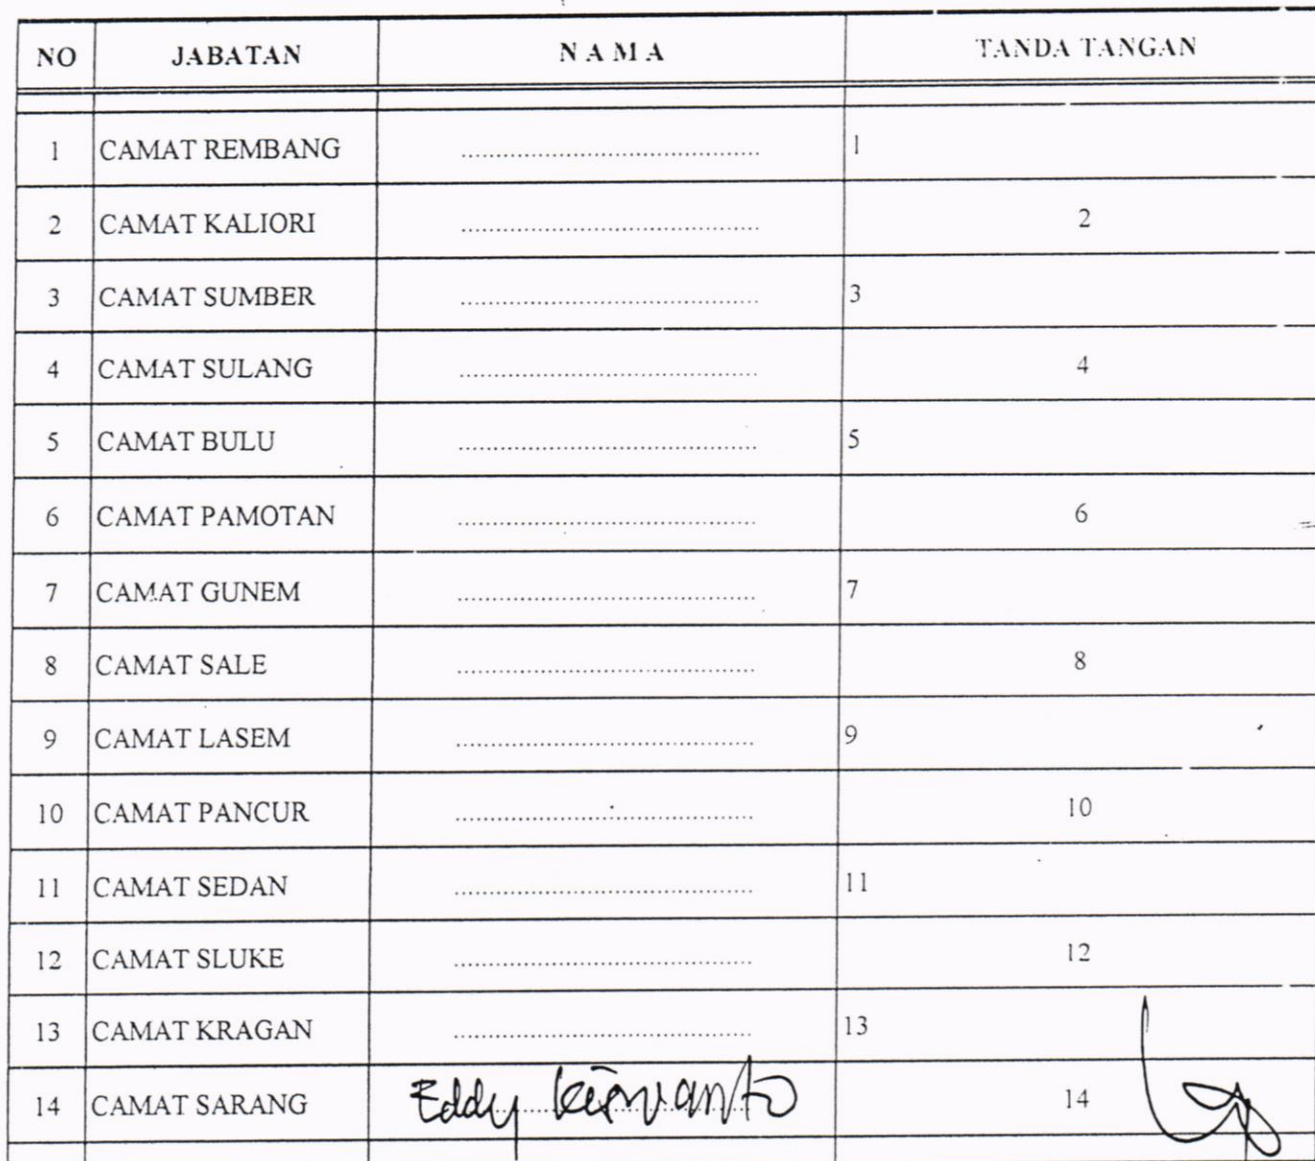 NO JABATAN N A M A TANDA TANGAN
1 CAMAT REMBANG ........................................... 1
2 CAMAT KALIORI ........................................... 2
3 CAMAT SUMBER ........................................... 3
4 CAMAT SULANG ........................................... 4
5 CAMAT BULU ........................................... 5
6 CAMAT PAMOTAN ........................................... 6
7 CAMAT GUNEM ........................................... 7
8 CAMAT SALE ........................................... 8
9 CAMAT LASEM ........................................... 9
10 CAMAT PANCUR ........................................... 10
11 CAMAT SEDAN ........................................... 11
12 CAMAT SLUKE ........................................... 12
13 CAMAT KRAGAN ........................................... 13
14 CAMAT SARANG Eddy 14